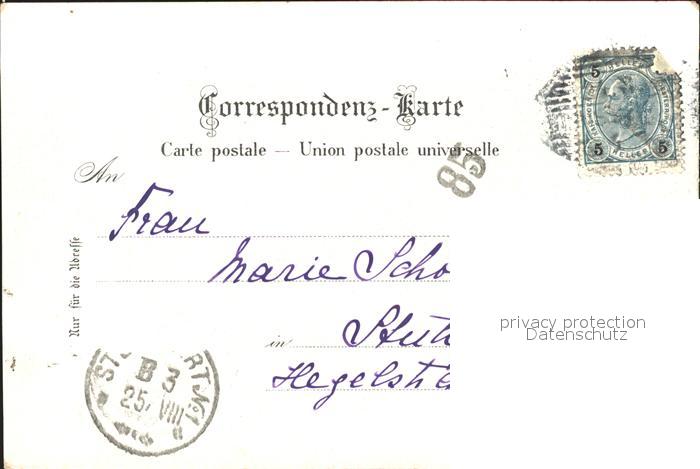 Correspondenz-Karte
Carte postale — Union postale universelle
85
5
5 5
An
Frau
Marie Scho
in Stut
Hegelst
Nur für die Adresse
privacy protection
Datenschutz
ST RT No 1
B 3
25 VIII